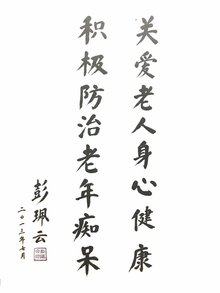 关爱老人身心健康
积极防治老年痴呆
彭珮云
二〇一三年七月